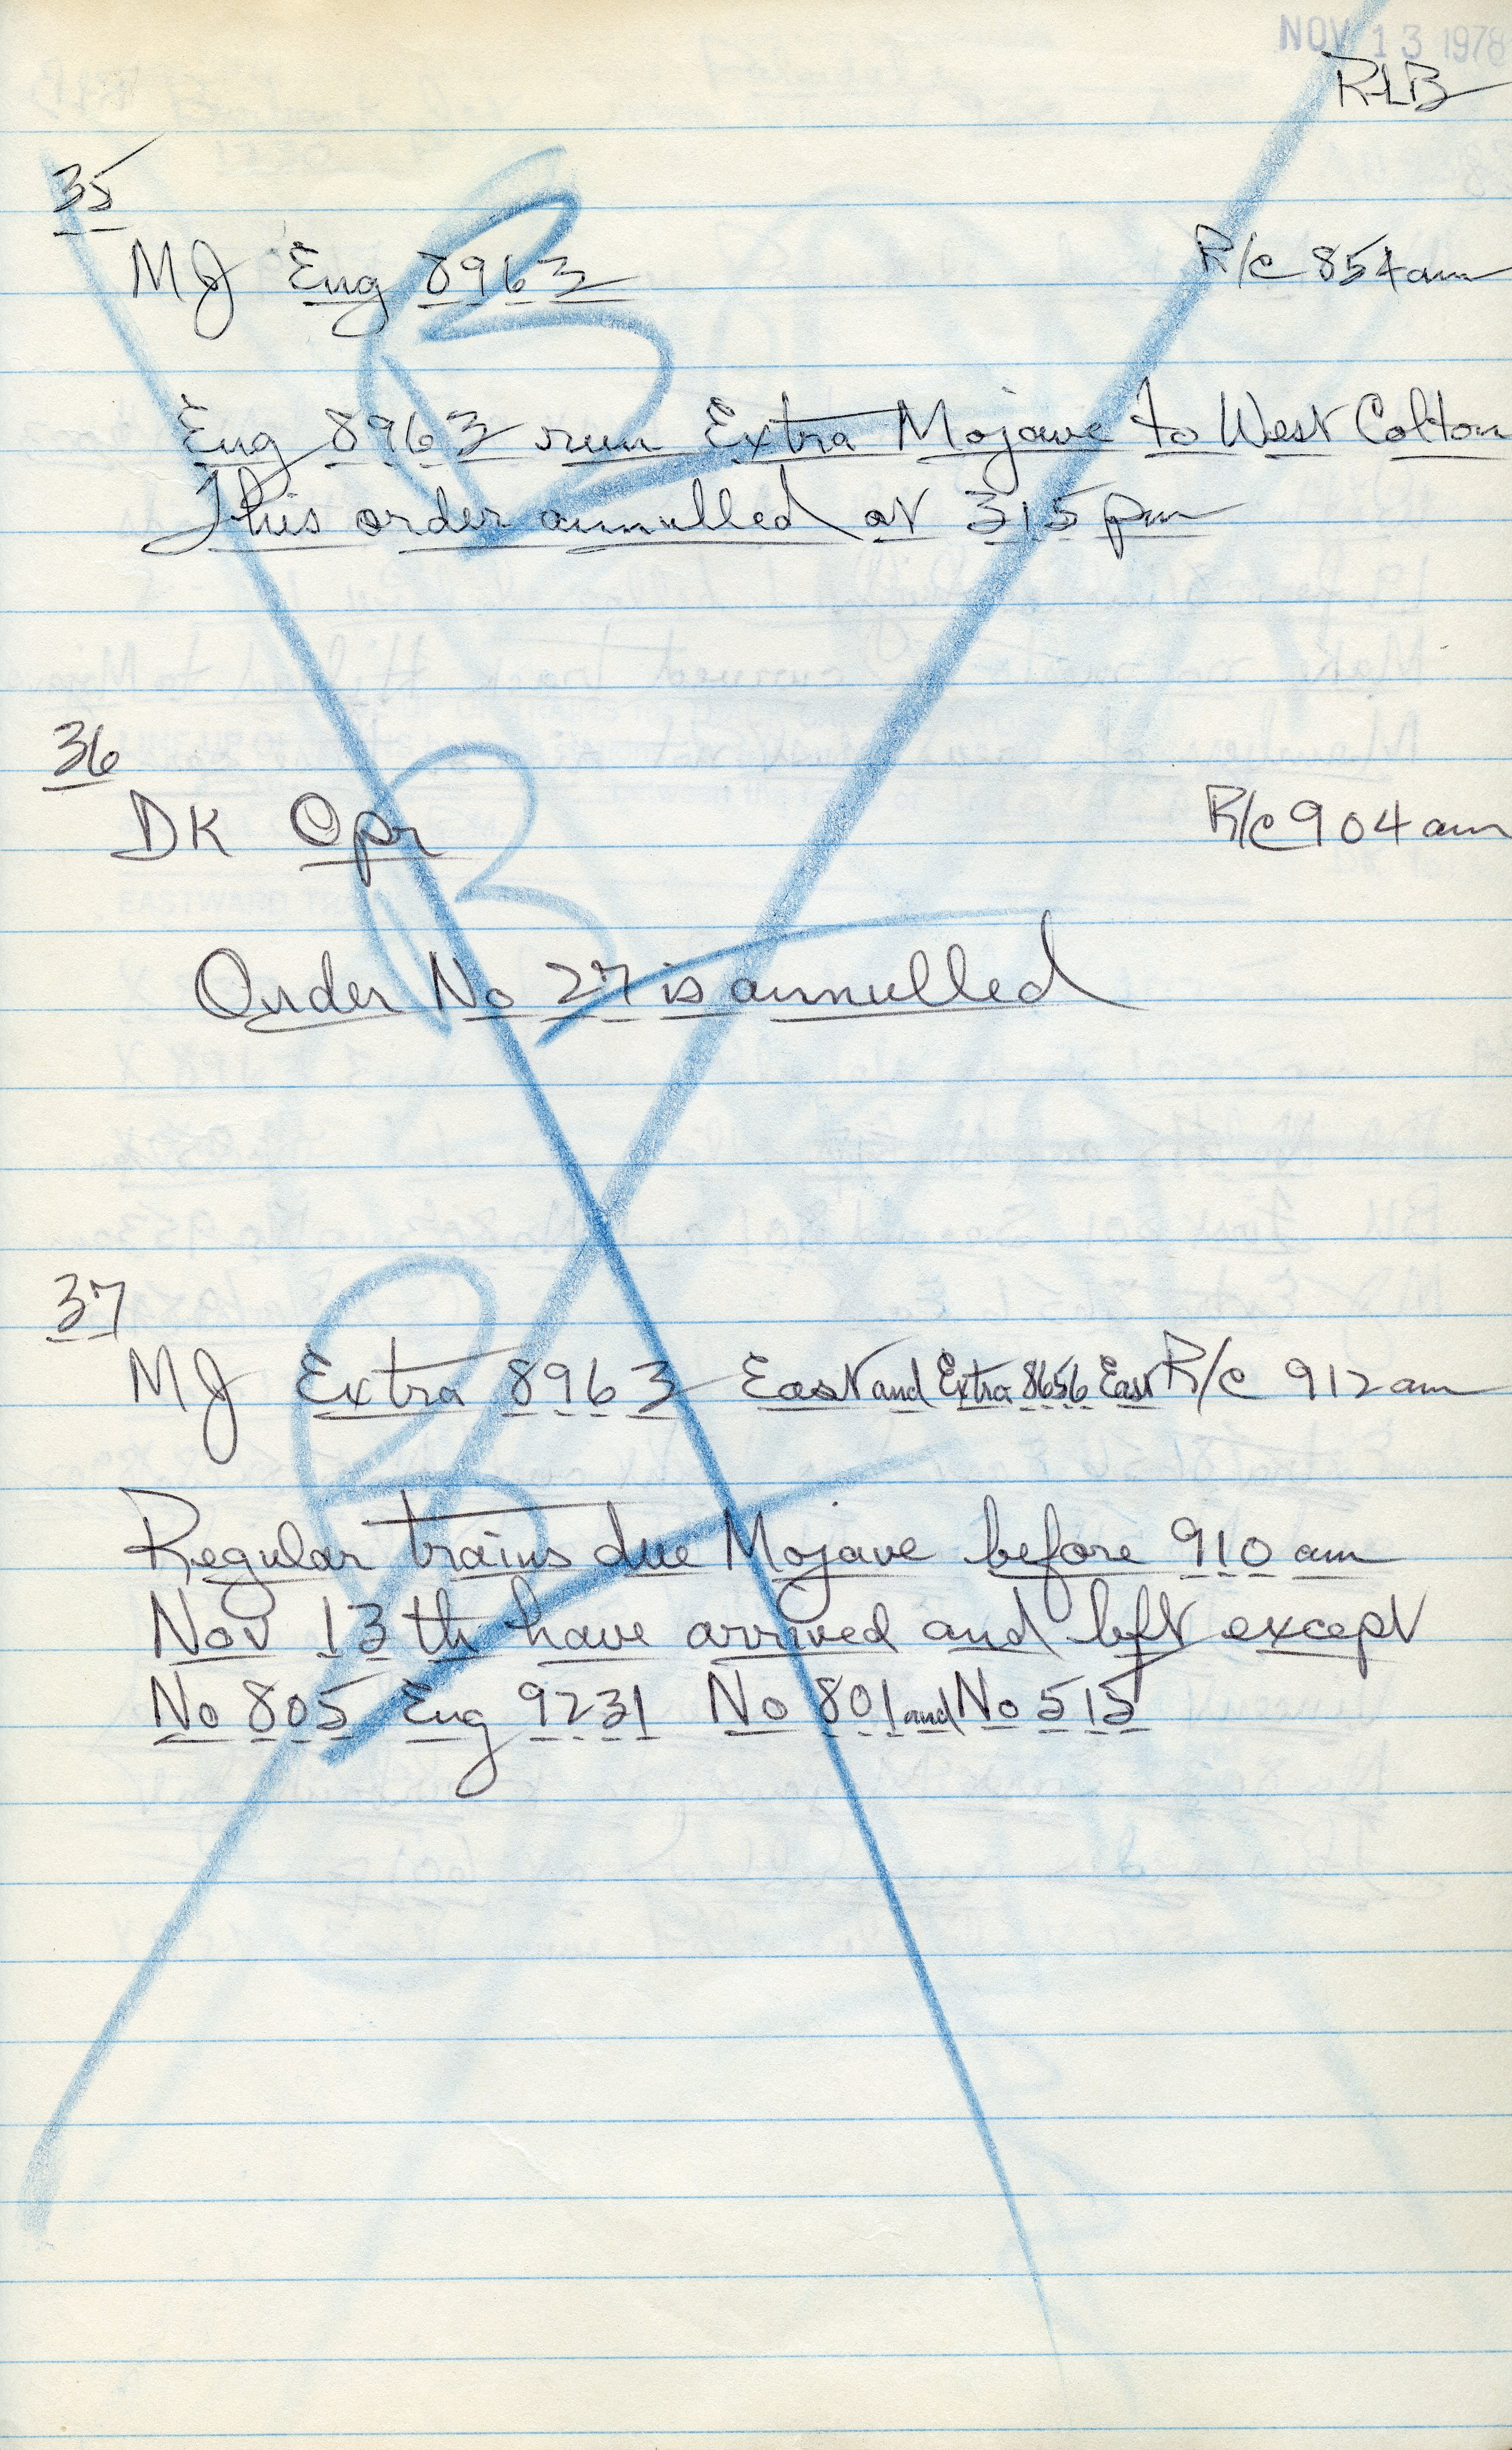 NOV 13 1978
RLB
35
MJ Eng 8963 R/c 854am
Eng 8963 run Extra Mojave to West Colton
This order annulled at 315pm
36
DK Opr R/c 904am
Order No 27 is annulled
37
MJ Extra 8963 East and Extra 8656 East R/c 912am
Regular trains due Mojave before 910am
Nov 13th have arrived and left except
No 805 Eng 9231 No 801 and No 515